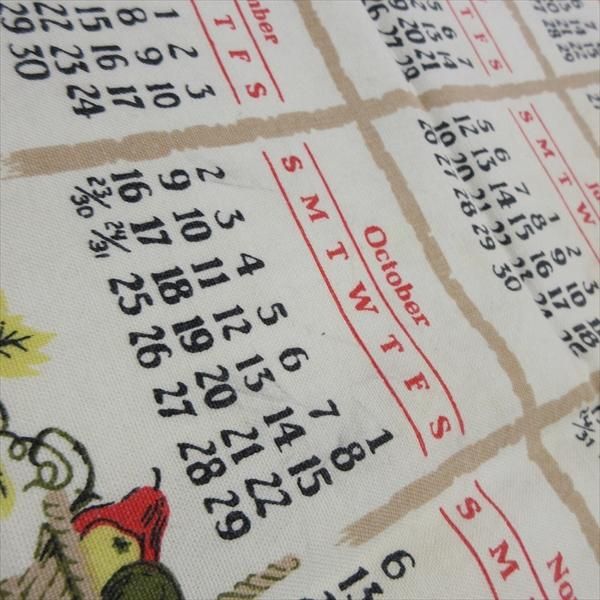 mber
T F S
1 2 3
8 9 10
15 16 17
22 23 24
29 30
T F S
5 6 7
13 14
20 21
26 27 28
October
S M T W T F S
1
2 3 4 5 6 7 8
9 10 11 12 13 14 15
16 17 18 19 20 21 22
23/30 24/31 25 26 27 28 29
S M T W
1 2 3
5 6 7 8 9 10
12 13 14 15 16
19 20 21 22 23
26 27 28 29 30
24/31
Nov
S M
6